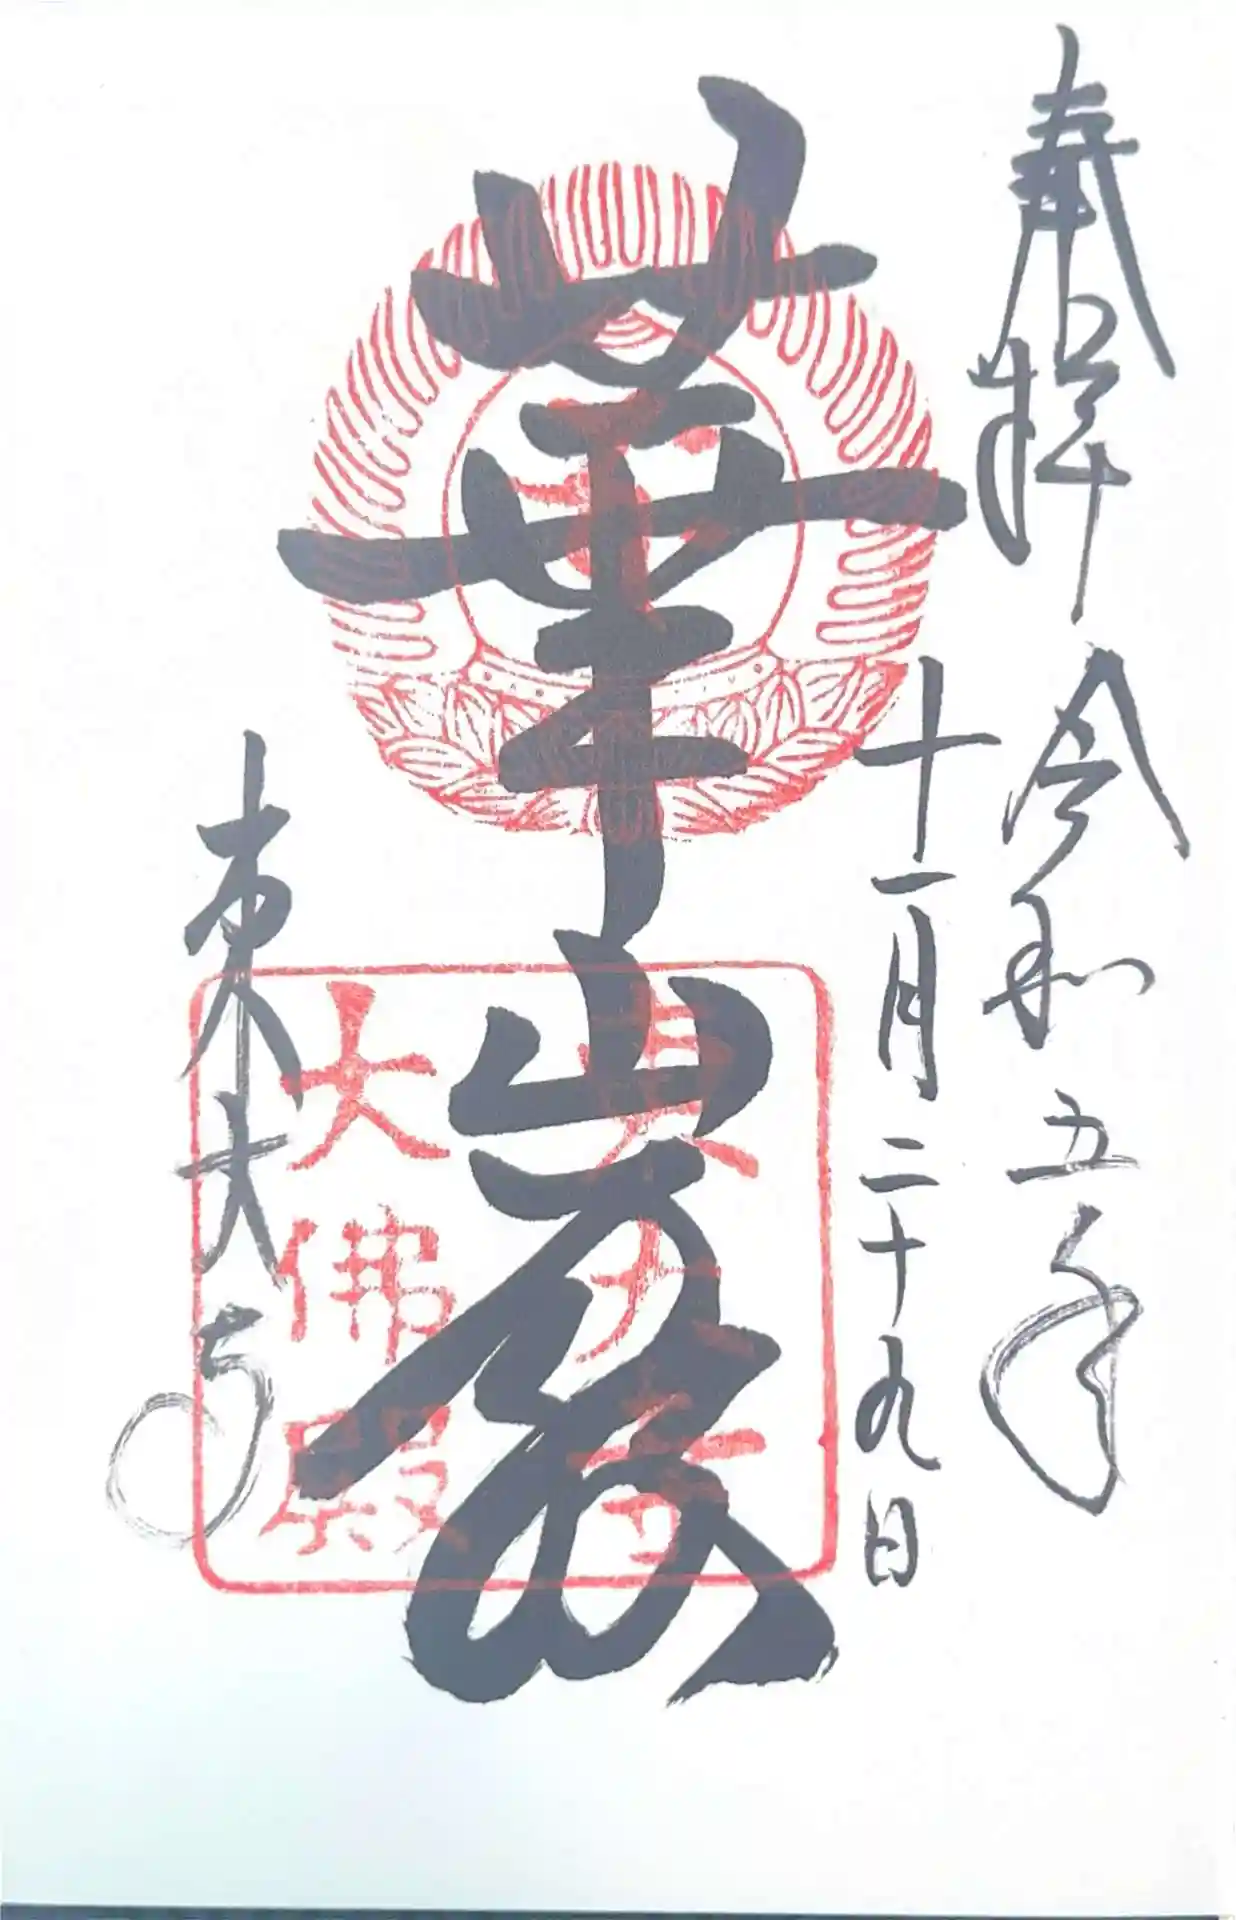 奉拝 令和五年
十一月二十九日
華嚴
東大寺
東大寺
大佛殿